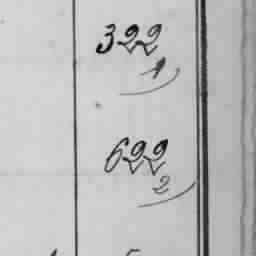 322
1
622
2